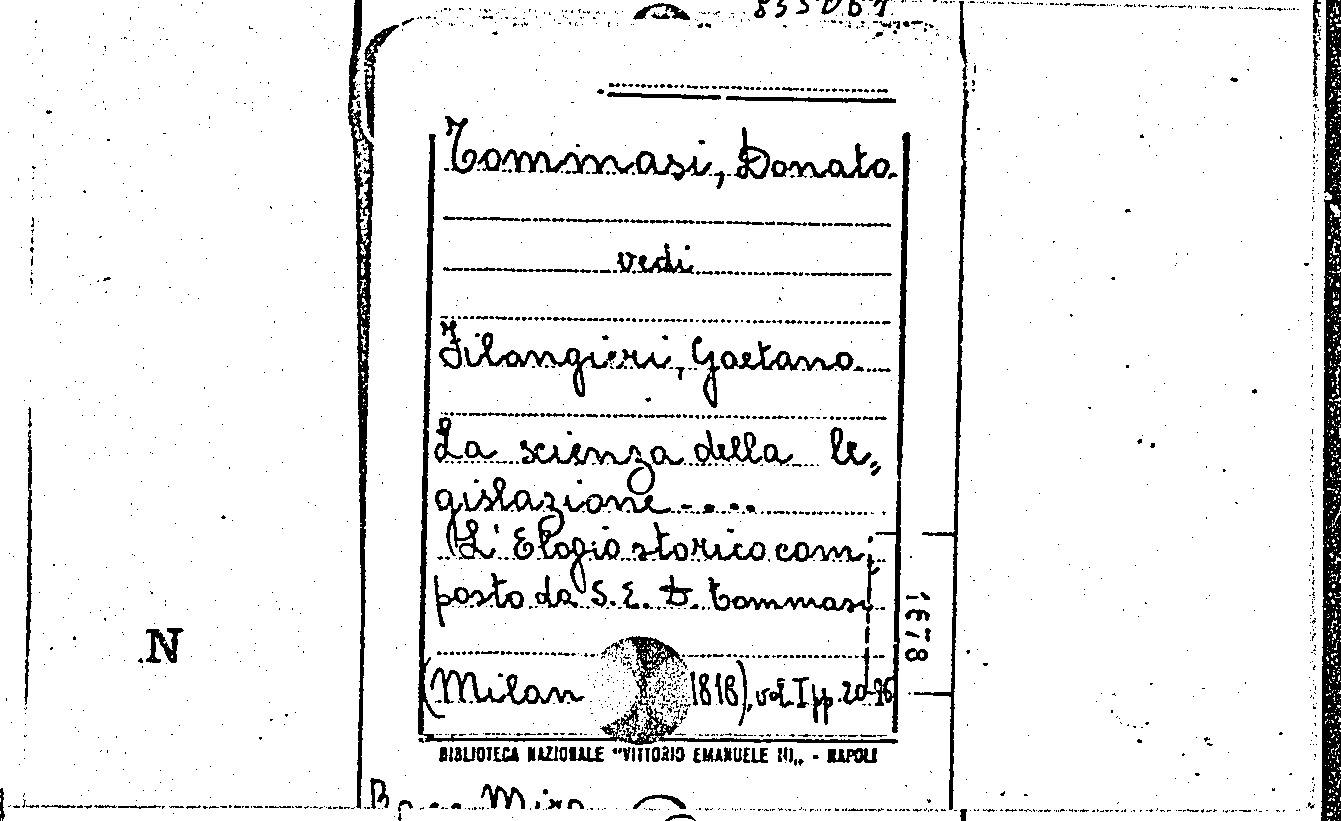 855067
Tommasi, Donato
vedi
Filangieri, Gaetano
La scienza della le=
gislazione....
L'Elogio storico com=
posto da S. E. D. Tommasi
N
1678
(Milan 1818), vol. I pp. 20-76
BIBLIOTECA NAZIONALE "VITTORIO EMANUELE III,, - NAPOLI